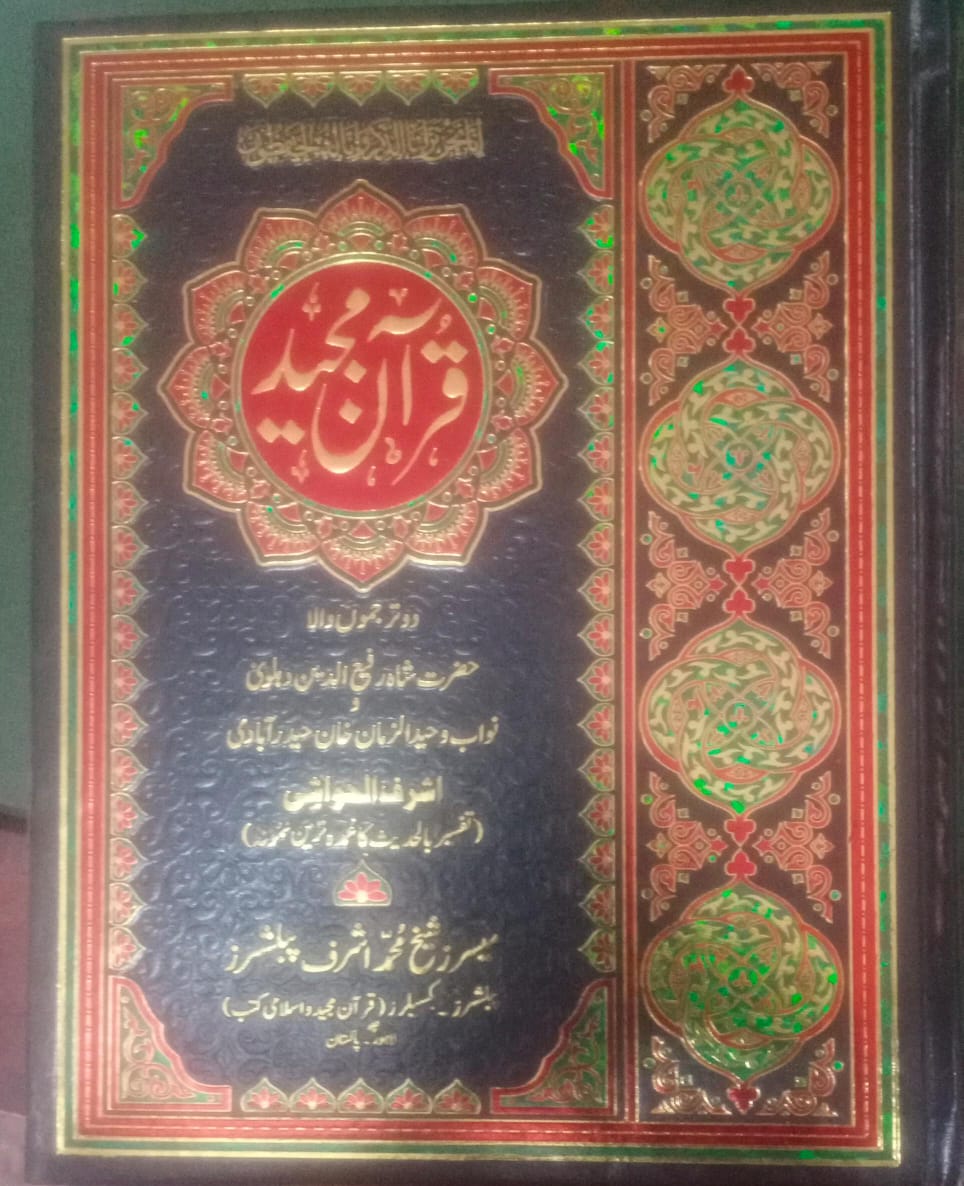 إنا نحن نزلنا الذكر وإنا له لحافظون
قرآن مجید
دو ترجموں والا
حضرت شاہ رفیع الدین دہلویؒ
و
نواب وحید الزمان خان حیدرآبادی
اشرف الحواشی
(تفسیر بالحدیث کا عمدہ ترین نمونہ)
میسرز شیخ محمد اشرف پبلشرز
پبلشرز۔ بکسیلرز (قرآن مجید و اسلامی کتب)
لاہور۔ پاکستان